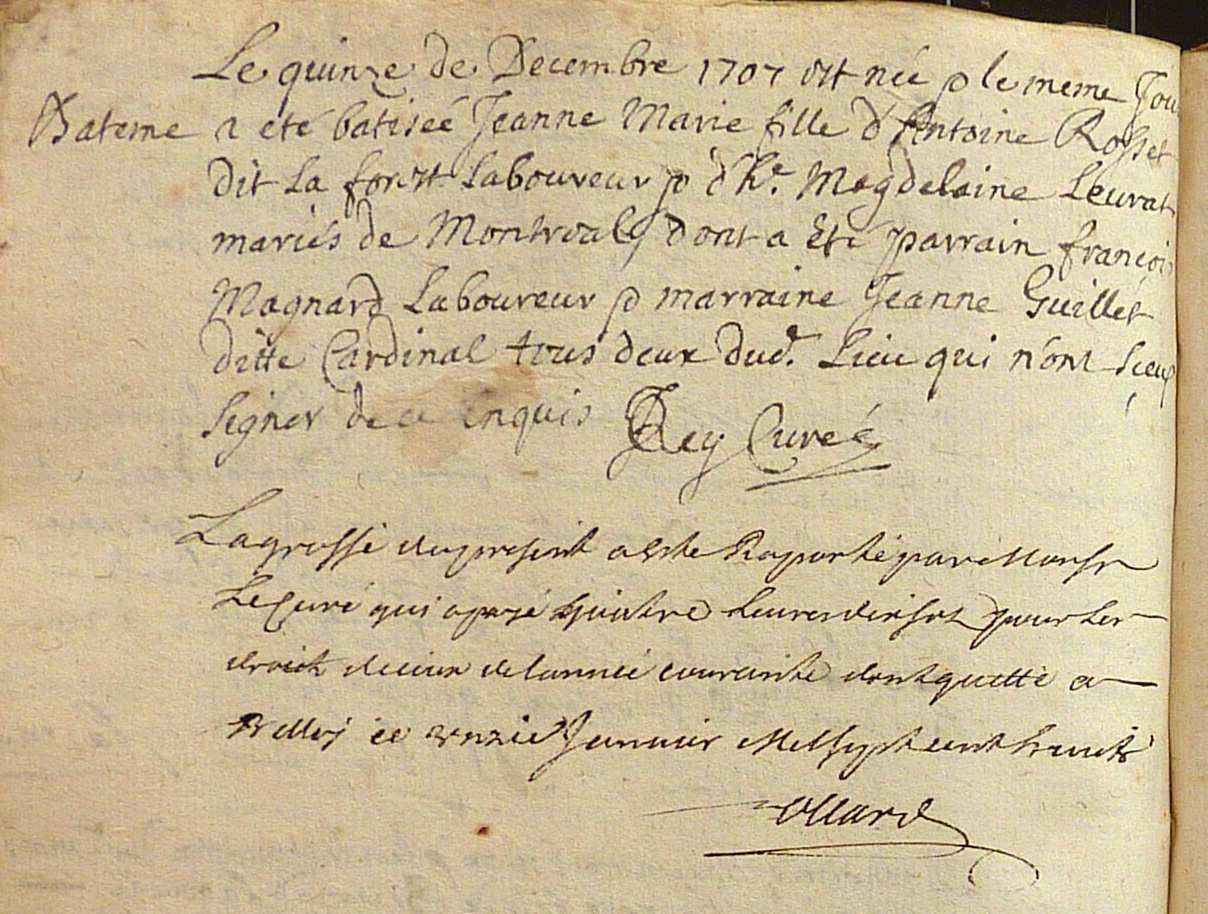 Le quinze de Decembre 1707 est née & le meme Jour
Bateme a été batisée Jeanne Marie fille d'Antoine Rosset
dit La forest Laboureur & d'he. Magdelaine Leurat
mariés de Montrealy dont a Eté parrain françois
Magnard Laboureur & marraine Jeanne Guillet
ditte Cardinal tous deux dud. Lieu qui n'ont sçeu
signer de ce enquis Rey Curé
La grosse du present a este Raporté par Monsr
Le Curé qui a payé quatre Livres pour Les
droits de ceux de l'année courante dont quitte a
Belley ce Janvier Mil sept cent huict